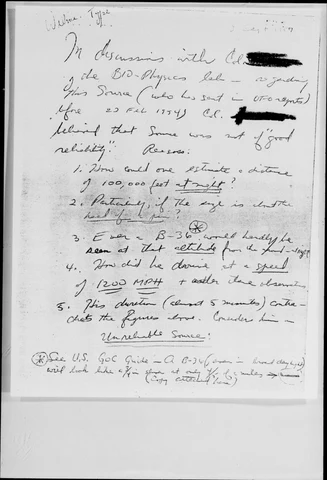 In discussions with Col.
of the BIO-Physics Lab — regarding
this Source (who has sent in UFO reports)
before 23 Feb 1954) C.C.
believed that Source was not of "good
reliability". Reasons:
1. How could one estimate a distance
of 100,000 feet at night?
2. Particularly, if the size is about the
head of a pin?
3. Even a B-36 * would hardly be
seen at that altitude from the
4. How did he derive at a speed
of 1200 MPH + earlier these observations
5. His duration (almost 5 minutes) contra-
dicts the figures above. Considers him —
Unreliable Source!
* See U.S. GOC Guide — A B-36 (even in broad daylight)
will look like a at only miles
(Copy attached)